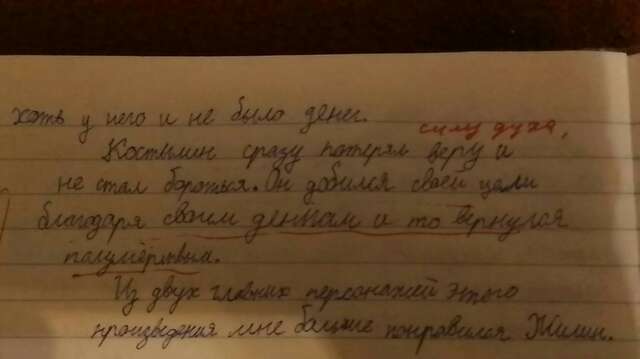 хоть у него и не было денег.
силу духа,
Костылин сразу потерял веру и
не стал бороться. Он добился своей цели
благодаря своим деньгам и то вернулся
полумёртвый.
Из двух главных персонажей этого
произведения мне больше понравился Жилин.